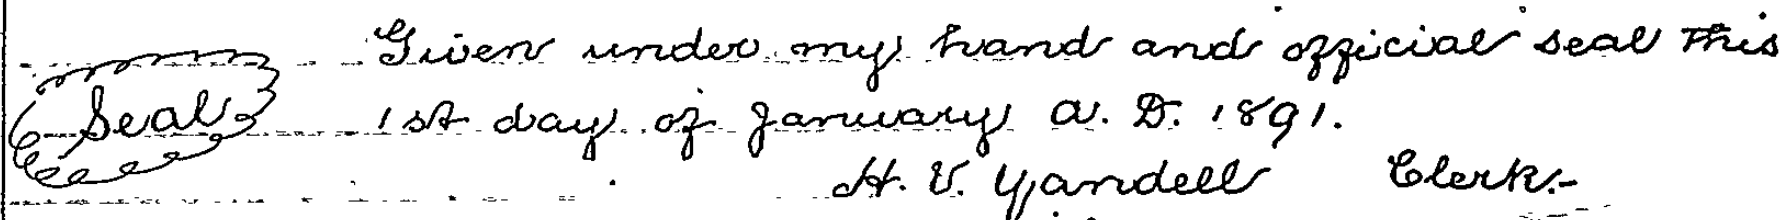 Given under my hand and official seal this
Seal 1st day of January A. D. 1891.
H. V. Yandell Clerk.-